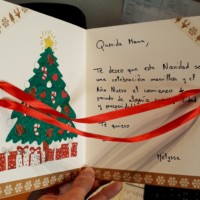 Querida Mama,
Te deseo que esta Navidad se
una celebración maravillosa y el
Año Nuevo el comienzo de
periodo de alegría
y prosperidad
Te quiero
Melyssa